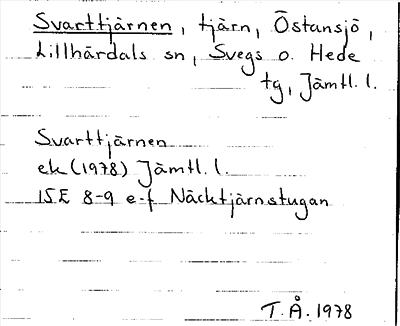 Svarttjärnen, tjärn, Östansjö,
Lillhärdals sn, Svegs o. Hede
tg, Jämtl. l.
Svarttjärnen
ek (1978) Jämtl. l.
15E 8-9 e-f Näcktjärnstugan
T.Å. 1978